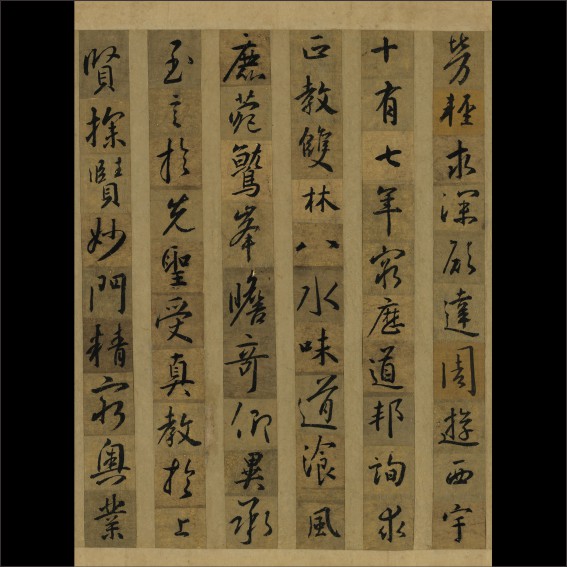 勞輕求深願達周遊西宇
十有七年窮歷道邦詢求
正教雙林八水味道湌風
鹿菀鷲峯瞻奇仰異承
至言於先聖受真教於上
賢探賾妙門精窮奧業